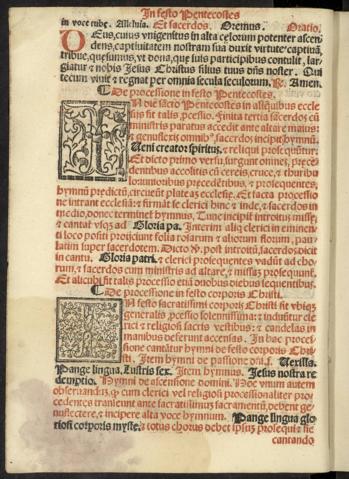 In festo Pentecostes
in voce tube. Alleluia. Et sacerdos. Oremus. Oratio.
DEus, cuius vnigenitus in alta celorum potenter ascen
dens, captiuitatem nostram sua duxit virtute captiuā,
tribue, quesumus, vt dona, que suis participibus contulit, lar
giatur & nobis Jesus Christus filius tuus dn̄s noster. Qui
tecum viuit & regnat per omnia secula seculorum. ℟. Amen.
¶ De processione in festo Pentecostes.
IN die sacro Pentecostes in aliquibus eccle
siis fit talis ꝓcessio. Finita tertia sacerdos cū
ministris paratus accedit ante altare maius:
& genuflexis omnibꝰ, sacerdos incipit hymnū.
Ueni creator spiritus. & reliqui prosequūtur.
Et dicto primo versu, surgunt omnes, prece
dentibus accolitis cū cereis, cruce, & thuribu
lo: minoribus precedētibus, & prosequentes,
hymnū predictū, circueūt plateas ecclesie. Et facta processio
ne intrant ecclesiā: & firmāt se clerici hinc & inde, & sacerdos in
medio, donec terminet hymnus. Tunc incipit introitus misse,
& cantat vsqꝫ ad Gloria pa. Interim aliq̄ clerici in eminen
ti loco positi proijciunt folia rosarum & aliorum florum, pau
latim super sacerdotem. Dicto ℣. post introitū, sacerdos dicit
in cantu. Gloria patri. & clerici prosequentes vadūt ad cho-
rum, & sacerdos cum ministris ad altare, & missaꝫ prosequunt.
Et alicubi fit talis processio etiā duobus diebus sequentibus.
¶ De processione in festo corporis Christi.
IN festo sacratissimi corporis Christi fit vbiqꝫ
generalis ꝓcessio solennissima: & induūtur cle
rici & religiosi sacris vestibus: & candelas in
manibus deferunt accensas. In hac proces
sione cantātur hymni de festo corporis Chri
sti. Item hymni de passione dn̄i. s. Uexilla.
Pange lingua. Lustris sex. Item hymnus. Jesus nostra re
demptio. Hymni de ascensione domini. Hoc vnum autem
obseruandū, ꝙ cum clerici vel religiosi processionaliter pro
cedentes transeunt ante sacratissimū sacramentū, debent ge-
nuflectere, & incipere alta voce hymnum. Pange lingua glo
riosi corporis myste. & totus chorus debet ipsum prosequi siue
cantando